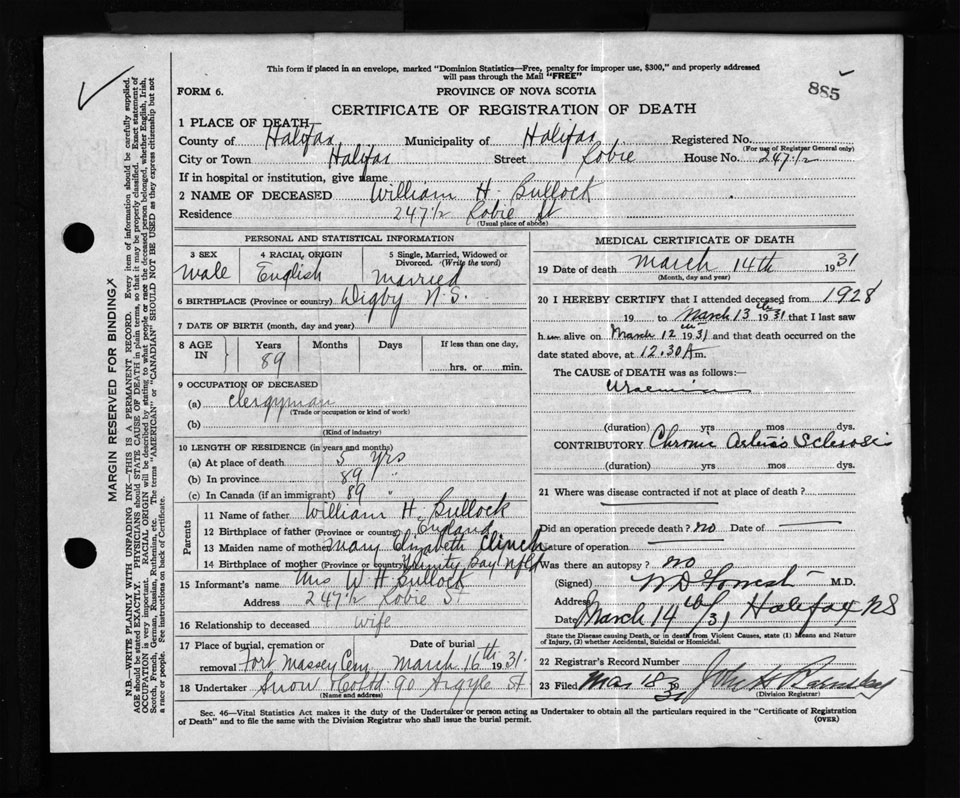 This form if placed in an envelope, marked "Dominion Statistics—Free, penalty for improper use, $300," and properly addressed
will pass through the Mail "FREE"
FORM 6.
PROVINCE OF NOVA SCOTIA
885
CERTIFICATE OF REGISTRATION OF DEATH
1 PLACE OF DEATH
County of Halifax Municipality of Halifax Registered No.
(For use of Registrar General only)
City or Town Halifax Street Robie House No. 247 1/2
If in hospital or institution, give name
2 NAME OF DECEASED William H. Bullock
Residence 247 1/2 Robie St
(Usual place of abode)
PERSONAL AND STATISTICAL INFORMATION
3 SEX Male
4 RACIAL ORIGIN English
5 Single, Married, Widowed or Divorced. (Write the word) Married
6 BIRTHPLACE (Province or country) Digby N.S.
7 DATE OF BIRTH (month, day and year)
8 AGE IN Years 89 Months Days If less than one day, hrs. or min.
9 OCCUPATION OF DECEASED
(a) Clergyman
(Trade or occupation or kind of work)
(b)
(Kind of industry)
10 LENGTH OF RESIDENCE (in years and months)
(a) At place of death 5 yrs
(b) In province 89 "
(c) In Canada (if an immigrant) 89 "
Parents
11 Name of father William H. Bullock
12 Birthplace of father (Province or country) England
13 Maiden name of mother Mary Elizabeth Clinch
14 Birthplace of mother (Province or country) Trinity Bay Nfld
15 Informant's name Mrs W H Bullock
Address 247 1/2 Robie St
16 Relationship to deceased wife
17 Place of burial, cremation or removal Fort Massey Cem. Date of burial March 16th 1931
18 Undertaker Snow & Co Ltd 90 Argyle St
(Name and address)
MEDICAL CERTIFICATE OF DEATH
19 Date of death March 14th 1931
(Month, day and year)
20 I HEREBY CERTIFY that I attended deceased from 1928
19 to March 13th 1931 that I last saw
him alive on March 12th 1931 and that death occurred on the
date stated above, at 12.30 A m.
The CAUSE of DEATH was as follows:—
Uraemia
(duration) yrs mos dys.
CONTRIBUTORY Chronic Arterio Sclerosis
(duration) yrs mos dys.
21 Where was disease contracted if not at place of death?
Did an operation precede death? no Date of
Nature of operation
Was there an autopsy? no
(Signed) W D Forrest M.D.
Address Halifax NS
Date March 14th/31
State the Disease causing Death, or in death from Violent Causes, state (1) Means and Nature of Injury, (2) whether Accidental, Suicidal or Homicidal.
22 Registrar's Record Number
23 Filed Mar 18
(Division Registrar)
Sec. 46—Vital Statistics Act makes it the duty of the Undertaker or person acting as Undertaker to obtain all the particulars required in the "Certificate of Registration
of Death" and to file the same with the Division Registrar who shall issue the burial permit.
(OVER)
MARGIN RESERVED FOR BINDING
N.B.—WRITE PLAINLY WITH UNFADING INK—THIS IS A PERMANENT RECORD. Every item of information should be carefully supplied.
AGE should be stated EXACTLY. PHYSICIANS should STATE CAUSE OF DEATH in plain terms, so that it may be properly classified. Exact statement of
OCCUPATION is very important. RACIAL ORIGIN will be described by stating to what people or race the deceased person belonged, whether English, Irish,
Scotch, French, German, Russian, Ruthenian, etc. The terms "AMERICAN" or "CANADIAN" SHOULD NOT BE USED as they express citizenship but not
a race or people. See instructions on back of Certificate.